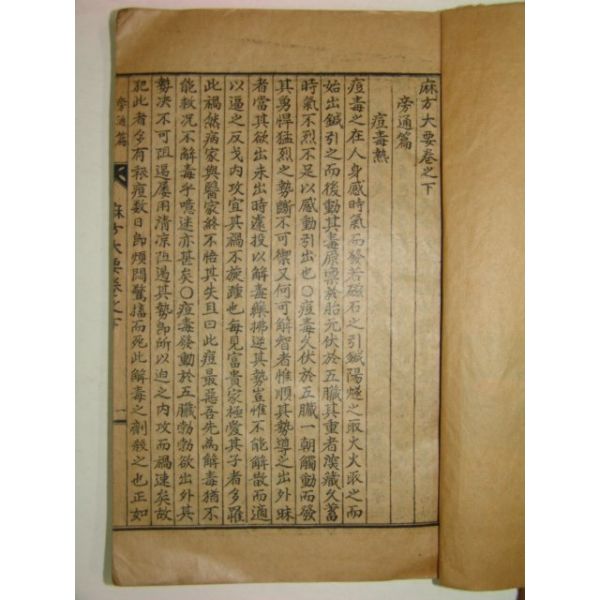 麻方大要卷之下
旁通篇
痘毒熱
痘毒之在人身感時氣而發若磁石之引鍼陽燧之取火火承之而
始出鍼引之而後動其毒原稟於胎元伏於五臟其重者深藏久蓄
時氣不烈不足以感動引出也〇痘毒久伏於五臟一朝觸動而發
其勇悍猛烈之勢斷不可禦又何可解智者惟順其勢導之出外昧
者當其欲出未出時遽投以解毒藥拂逆其勢豈惟不能解散而適
以逼之反戈內攻宜其禍不旋踵也每見富貴家極愛其子者多罹
此禍然病家與醫家終不悟其失且曰此痘最惡吾先為解毒猶不
能救况不解毒乎噫迷亦甚矣〇痘毒發動於五臟勃勃欲出外其
勢决不可阻遏屢用清凉阻遏其勢即所以迫之內攻而禍速矣故
犯此者多有報痘數日即煩悶驚搐而死此解毒之劑殺之也正如
旁通篇 麻方大要卷之下 一